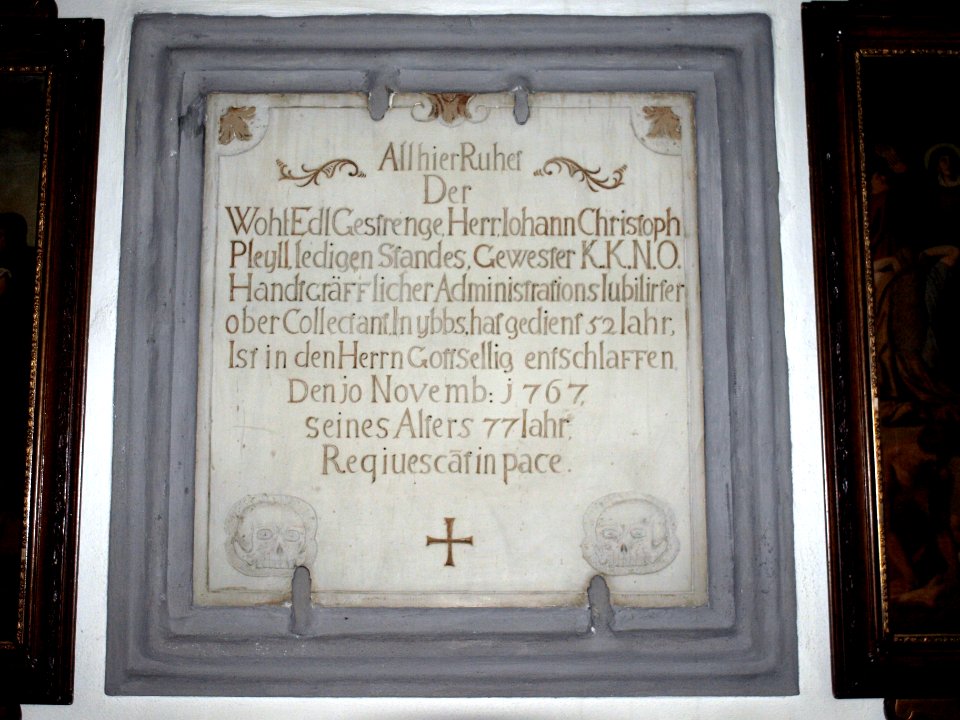 Allhier Ruhet
Der
WohlEdl Gestrenge, Herr, Iohann Christoph
Pleyll, ledigen Standes, Gewester K.K.N.O.
Handtgräfflicher Administrations Iubilirter
ober Collectant, In ybbs, hat gedient 52 Iahr,
Ist in den Herrn Gottsellig entschlaffen
Den jo Novemb: j767,
seines Alters 77 Iahr,
Reqiuescāt in pace.